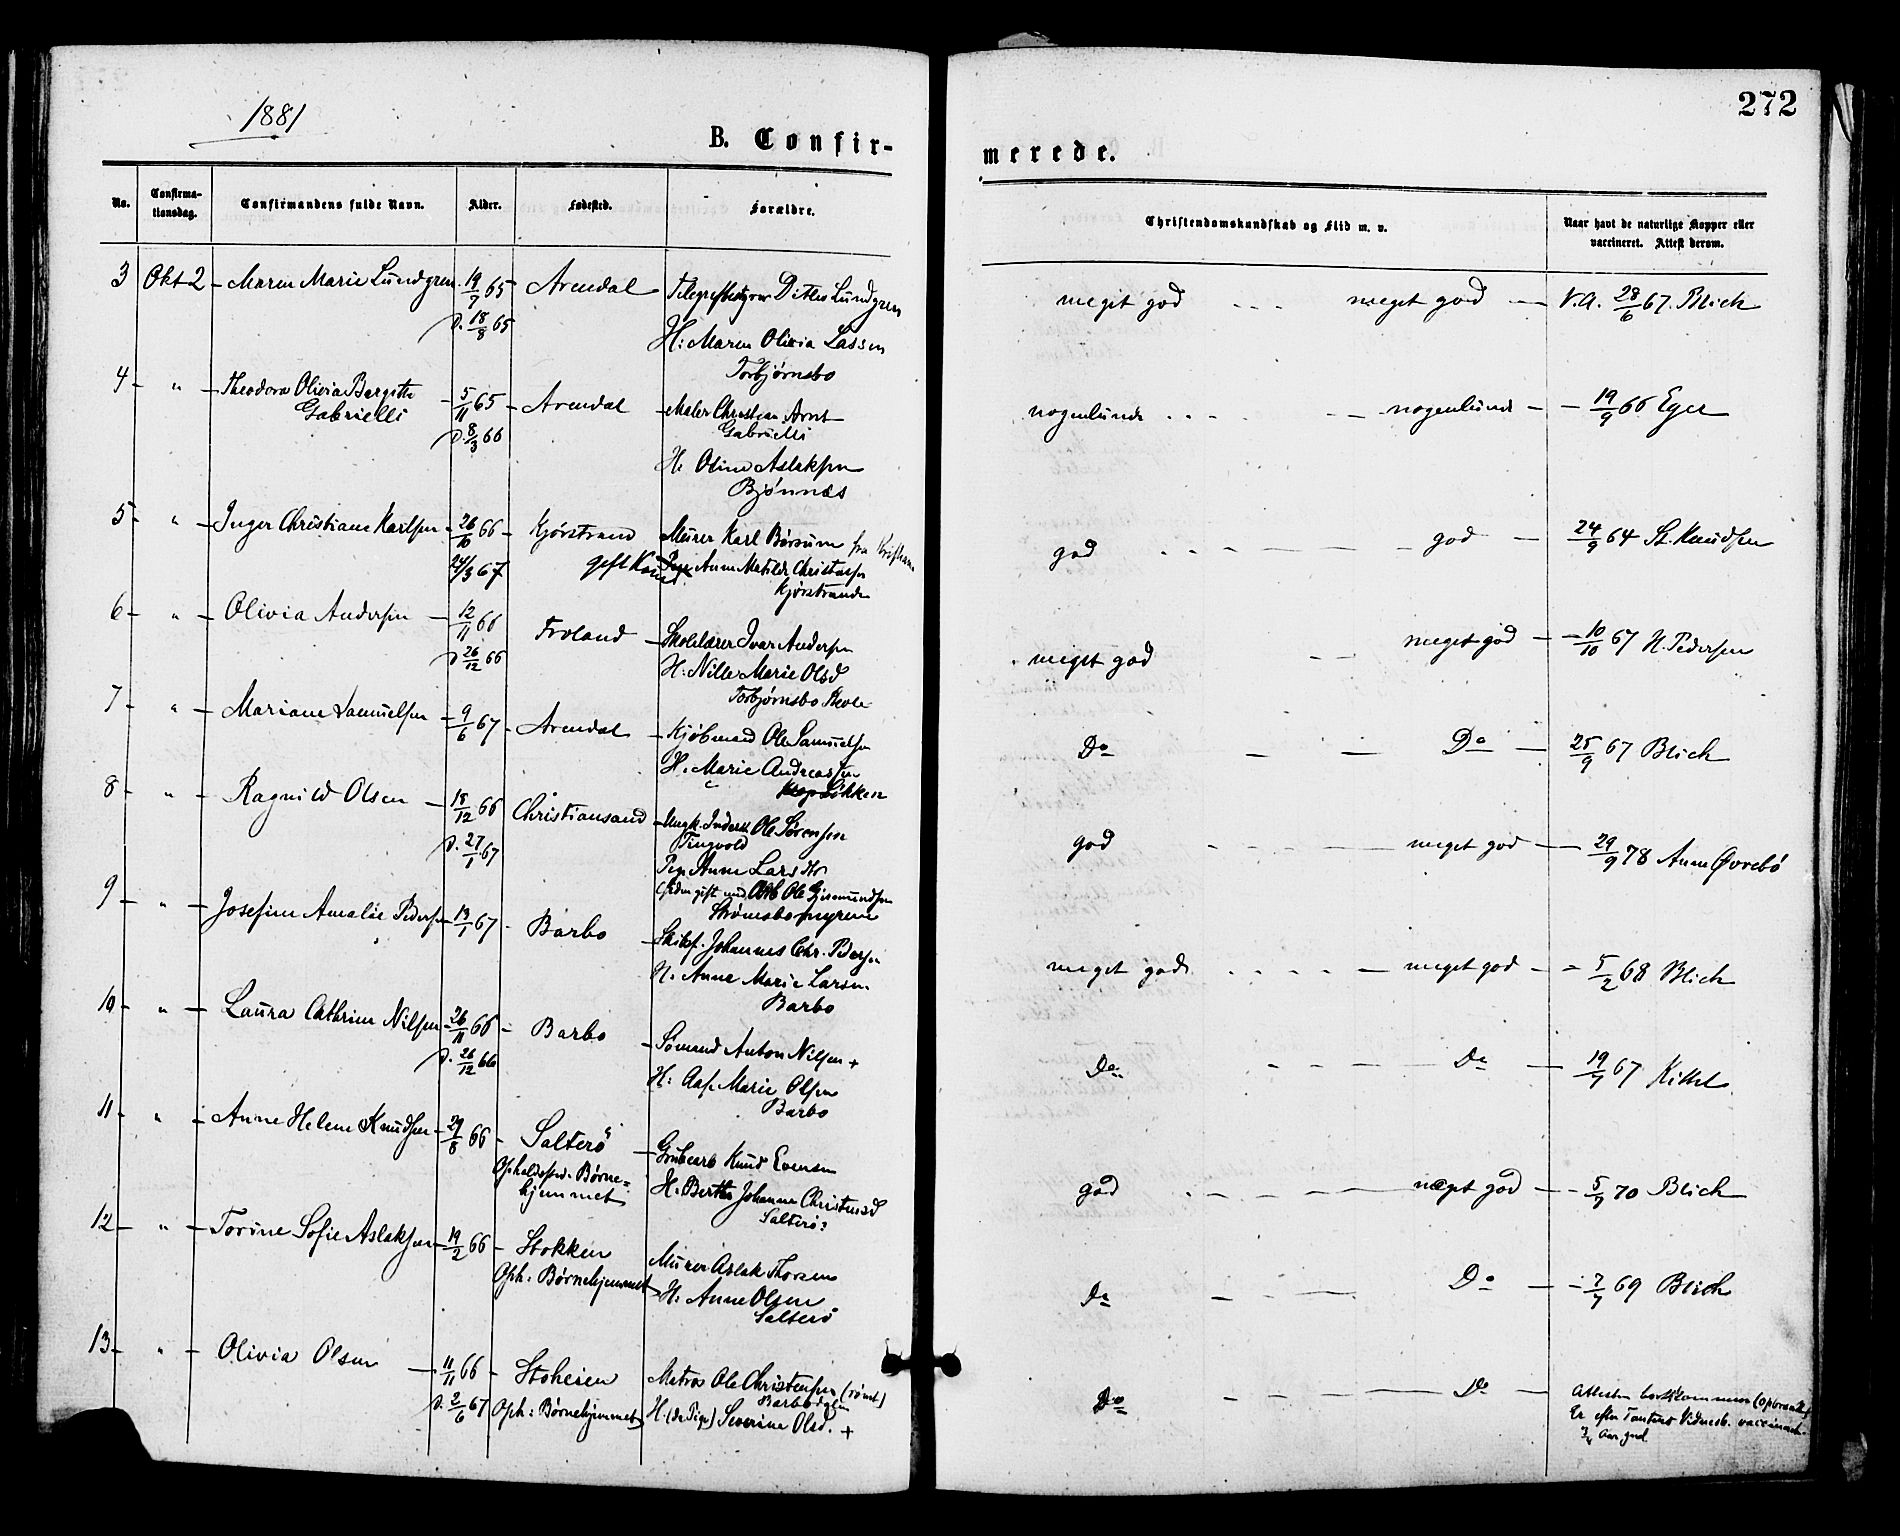 1881
272
B. Confir-
merede.
No.
Confirma-
tionsdag.
Confirmandens fulde Navn.
Alder.
Fødested.
Forældre.
Christendomskundskab og Flid m. v.
Naar havt de naturlige Kopper eller
vaccineret. Attest derom.
3 Okt 2 - Maren Marie Lundgren 19/7 65 Arendal Ditlev Lundgren meget god - - - meget god - V.A. 28/6 67. Blich
D. 18/8 65 H: Maren Olivia Lassen
Torbjørnsbo
4 - " - Theodora Olivia Bergitte - 5/11 65 - Arendal - Maler Christian Arnt nogenlunde - - - nogenlunde - - 19/9 66 Eger
Gabrielli D. 8/3 66 Gabrielli
H: Oline Aslaksen
Bjønnes
5 - " - Inger Christiane Karlsen - 26/10 66 - Kjørstrand Murer Karl Børsum fra god - - - god - 24/9 64 St. Knudsen
24/3 67 gift Anne Matilde Christensen
Kjørstrand
6 - " - Olivia Andersen - 12/11 66 Froland - Skolelærer Ivar Andersen meget god - - meget god - - 10/10 67 N. Pedersen
D. 26/12 66 H. Nille Marie Olsd
Torbjørnsbo Skole
7 - " - Mariane Samuelsen - 9/6 67 - Arendal - Kjøbmand Ole Samuelsen Do - - Do - 25/9 67 Blich
H. Marie Andreassen
Løkken
8 - " - Ragnild Olsen - 18/12 66 Christiansand - Ungk. Ole Sørensen god - - - meget god - - 29/9 78 Anne Øvrebø
D. 27/1 67 Tingvold
Pige Anne Larsdtr
(siden gift med Ole Gjermundsen
Strømsbomyrene
9 - " - Josefine Amalie Pedersen 13/1 67 - Barbo - Skibsf. Johannes Chr. Pedersen meget god - - - meget god - - 5/2 68 Blich
H. Anne Marie Larsen
Barbo
10 - " - Laura Cathrine Nilsen - 26/11 66 - Barbo - Sømand Anton Nilsen + Do - - - Do - 19/7 67 Kittel
D. 26/12 66 H: Aas. Marie Olsen
Barbo
11 - " - Anne Helene Knudsen - 29/8 66 - Salterø - Grubearb Knud Evensen god - - - meget god - - 5/7 70 Blich
Opholdssted. Børne= H. Berthe Johanne Christensd
hjemmet Salterø
12 - " - Torine Sofie Aslaksen - 19/2 66 - Stokken Murer Aslak Thorsen Do - - - Do - - 7/7 69 Blich
Oph: Børnehjemmet H. Anne Olsen
Salterø
13 - " - Olivia Olsen - 11/11 66 - Stoheien Matros Ole Christensen (rømt) Do - - - Do - Attesten bortkommen
D. 2/6 67 Oph: Børnehjemmet Barbodalen Er efter Tantens Vidnesb. vaccineret
H. (da Pige) Severine Olsd. + 3/4 Aar gml